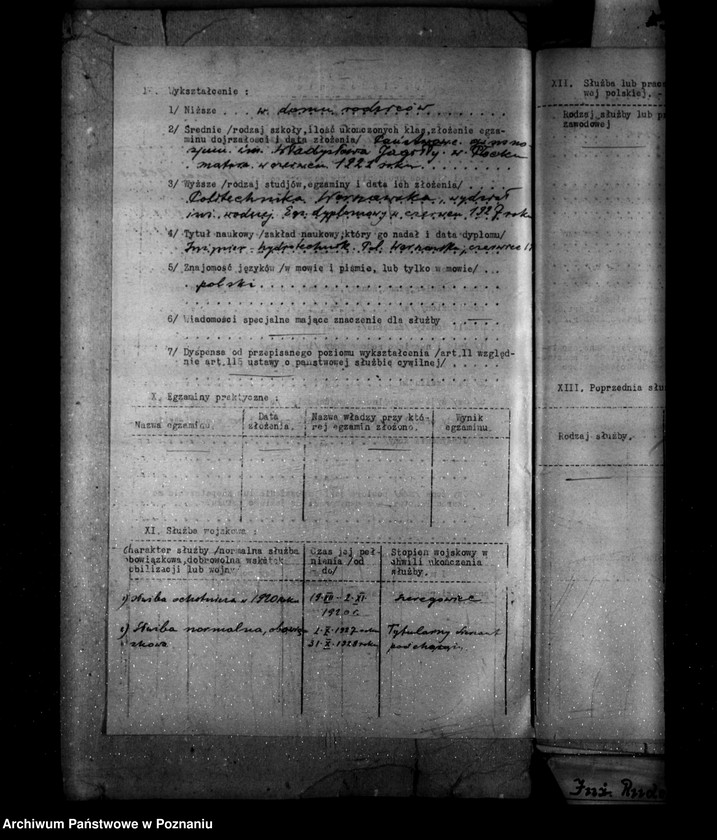 Wykształcenie :
1/ Niższe . . . w domu rodziców
2/ Średnie /rodzaj szkoły,ilość ukończonych klas,złożenie egza-
minu dojrzałości i data złożenia/ Państwowe gimna-
zjum im. Władysława Jagiełły w Płocku
matura w czerwcu 1922 roku
3/ Wyższe /rodzaj studjów,egzaminy i data ich złożenia/
Politechnika Warszawska, wydział
inż. wodnej Egz. dyplomowy w czerwcu 1927 roku
4/ Tytuł naukowy /zakład naukowy,który go nadał i data dyplomu/
Inżynier hydrotechnik Pol. Warszawska, czerwiec
5/ Znajomość języków /w mowie i piśmie, lub tylko w mowie/ . . .
polski
6/ Wiadomości specjalne mające znaczenie dla służby
7/ Dyspensa od przepisanego poziomu wykształcenia /art.11 względ-
nie art.116 ustawy o państwowej służbie cywilnej/
X. Egzaminy praktyczne :
Nazwa egzaminu.
Data złożenia.
Nazwa władzy przy któ-
rej egzamin złożono.
Wynik egzaminu.
XI. Służba wojskowa :
Charakter służby /normalna służba
obowiązkowa,dobrowolna wskutek
mobilizacji lub wojny/
Czas jej peł-
nienia /od
- do/
Stopień wojskowy w
chwili ukończenia
służby.
1) Służba ochotnicza w 1920 roku
19.VII – 2.XI.
1920 r.
szeregowiec
2) Służba normalna, obowią-
zkowa
1.X.1927 roku
31.X.1928 roku
Tytularny
podchorąży.
XII. Służba lub prac
wej polskiej, -
Rodzaj służby lub p
zawodowej
XIII. Poprzednia słu
Rodzaj służby.
Inż.
Archiwum Państwowe w Poznaniu